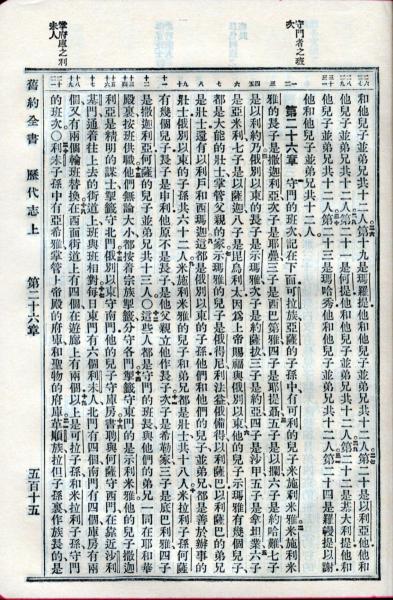 守門者之班次
和他兒子並弟兄共十二人第十九是瑪羅提他和他兒子並弟兄共十二人第二十是以利亞他他和
他兒子並弟兄共十二人第二十一是何提他和他兒子並弟兄共十二人第二十二是基大利提他和
他兒子並弟兄共十二人第二十三是瑪哈秀他和他兒子並弟兄共十二人第二十四是羅幔提以謝
他和他兒子並弟兄共十二人
第二十六章 守門的班次記在下面可拉族亞薩的子孫中有可利的兒子米施利米雅米施利米
雅的長子是撒迦利亞次子是耶疊三子是西巴第雅四子是耶提聶五子是以攔六子是約哈難七子
是以利約乃俄別以東的長子是示瑪雅次子是約薩拔三子是約亞四子是沙甲五子是拿坦業六子
是亞米利七子是以薩迦八子是毘烏利太因爲上帝賜福與俄別以東他的兒子示瑪雅有幾個兒子
都是大能的壯士掌管父親的家示瑪雅的兒子是俄得尼利法益俄備得以利薩巴以利薩巴的弟兄
是壯士還有以利戶和西瑪迦這都是俄別以東的子孫他們和他們的兒子並弟兄都是善於辦事的
壯士俄別以東的子孫共六十二人米施利米雅的兒子和弟兄都是壯士共十八人米拉利子孫何薩
有幾個兒子長子是申利他原不是長子是他父親立他作長子次子是希勒家三子是底巴利雅四子
是撒迦利亞何薩的兒子並弟兄共十三人〇這些人都是守門的班長與他們的弟兄一同在耶和華
殿裏按班供職他們無論大小都按着宗族掣籤分守各門掣籤守東門的是示利米雅他的兒子撒迦
利亞是精明的謀士掣籤守北門俄別以東守南門他的兒子守庫房書聘與何薩守西門在靠近沙利
基門通着往上去的街道上班與班相對每日東門有六個利未人北門有四個南門有四個庫房有兩
個又有兩個輪班替換在西面街道上有四個在遊廊上有兩個以上是可拉子孫和米拉利子孫守門
的班次〇利未子孫中有亞希雅掌管上帝殿的府庫和聖物的府庫革順族拉但子孫裏作族長的是
掌府庫之利未人
舊約全書 歷代志上 第二十六章 五百十五